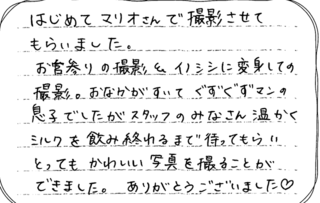 はじめて マリオさんで撮影させて
もらいました。
お宮参りの撮影 & イノシシに変身しての
撮影。おなかがすいて ぐずぐずマンの
息子でしたがスタッフのみなさん 温かく
ミルクを飲み終わるまで待ってもらい
とっても かわいい写真を撮ることが
できました。 ありがとうございました♡